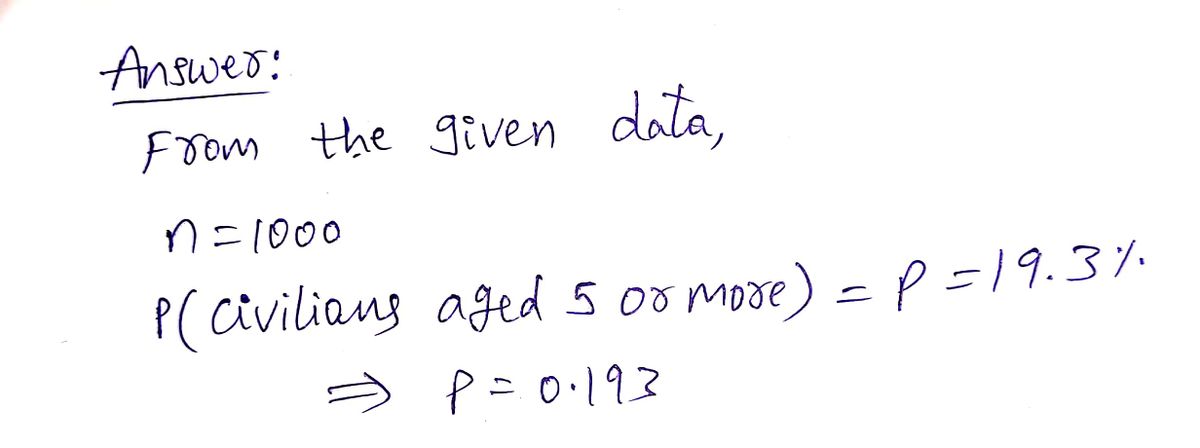 Answer:
From the given data,
n=1000
P(civilians aged 5 or more) = p = 19.3%
⇒ p = 0.193